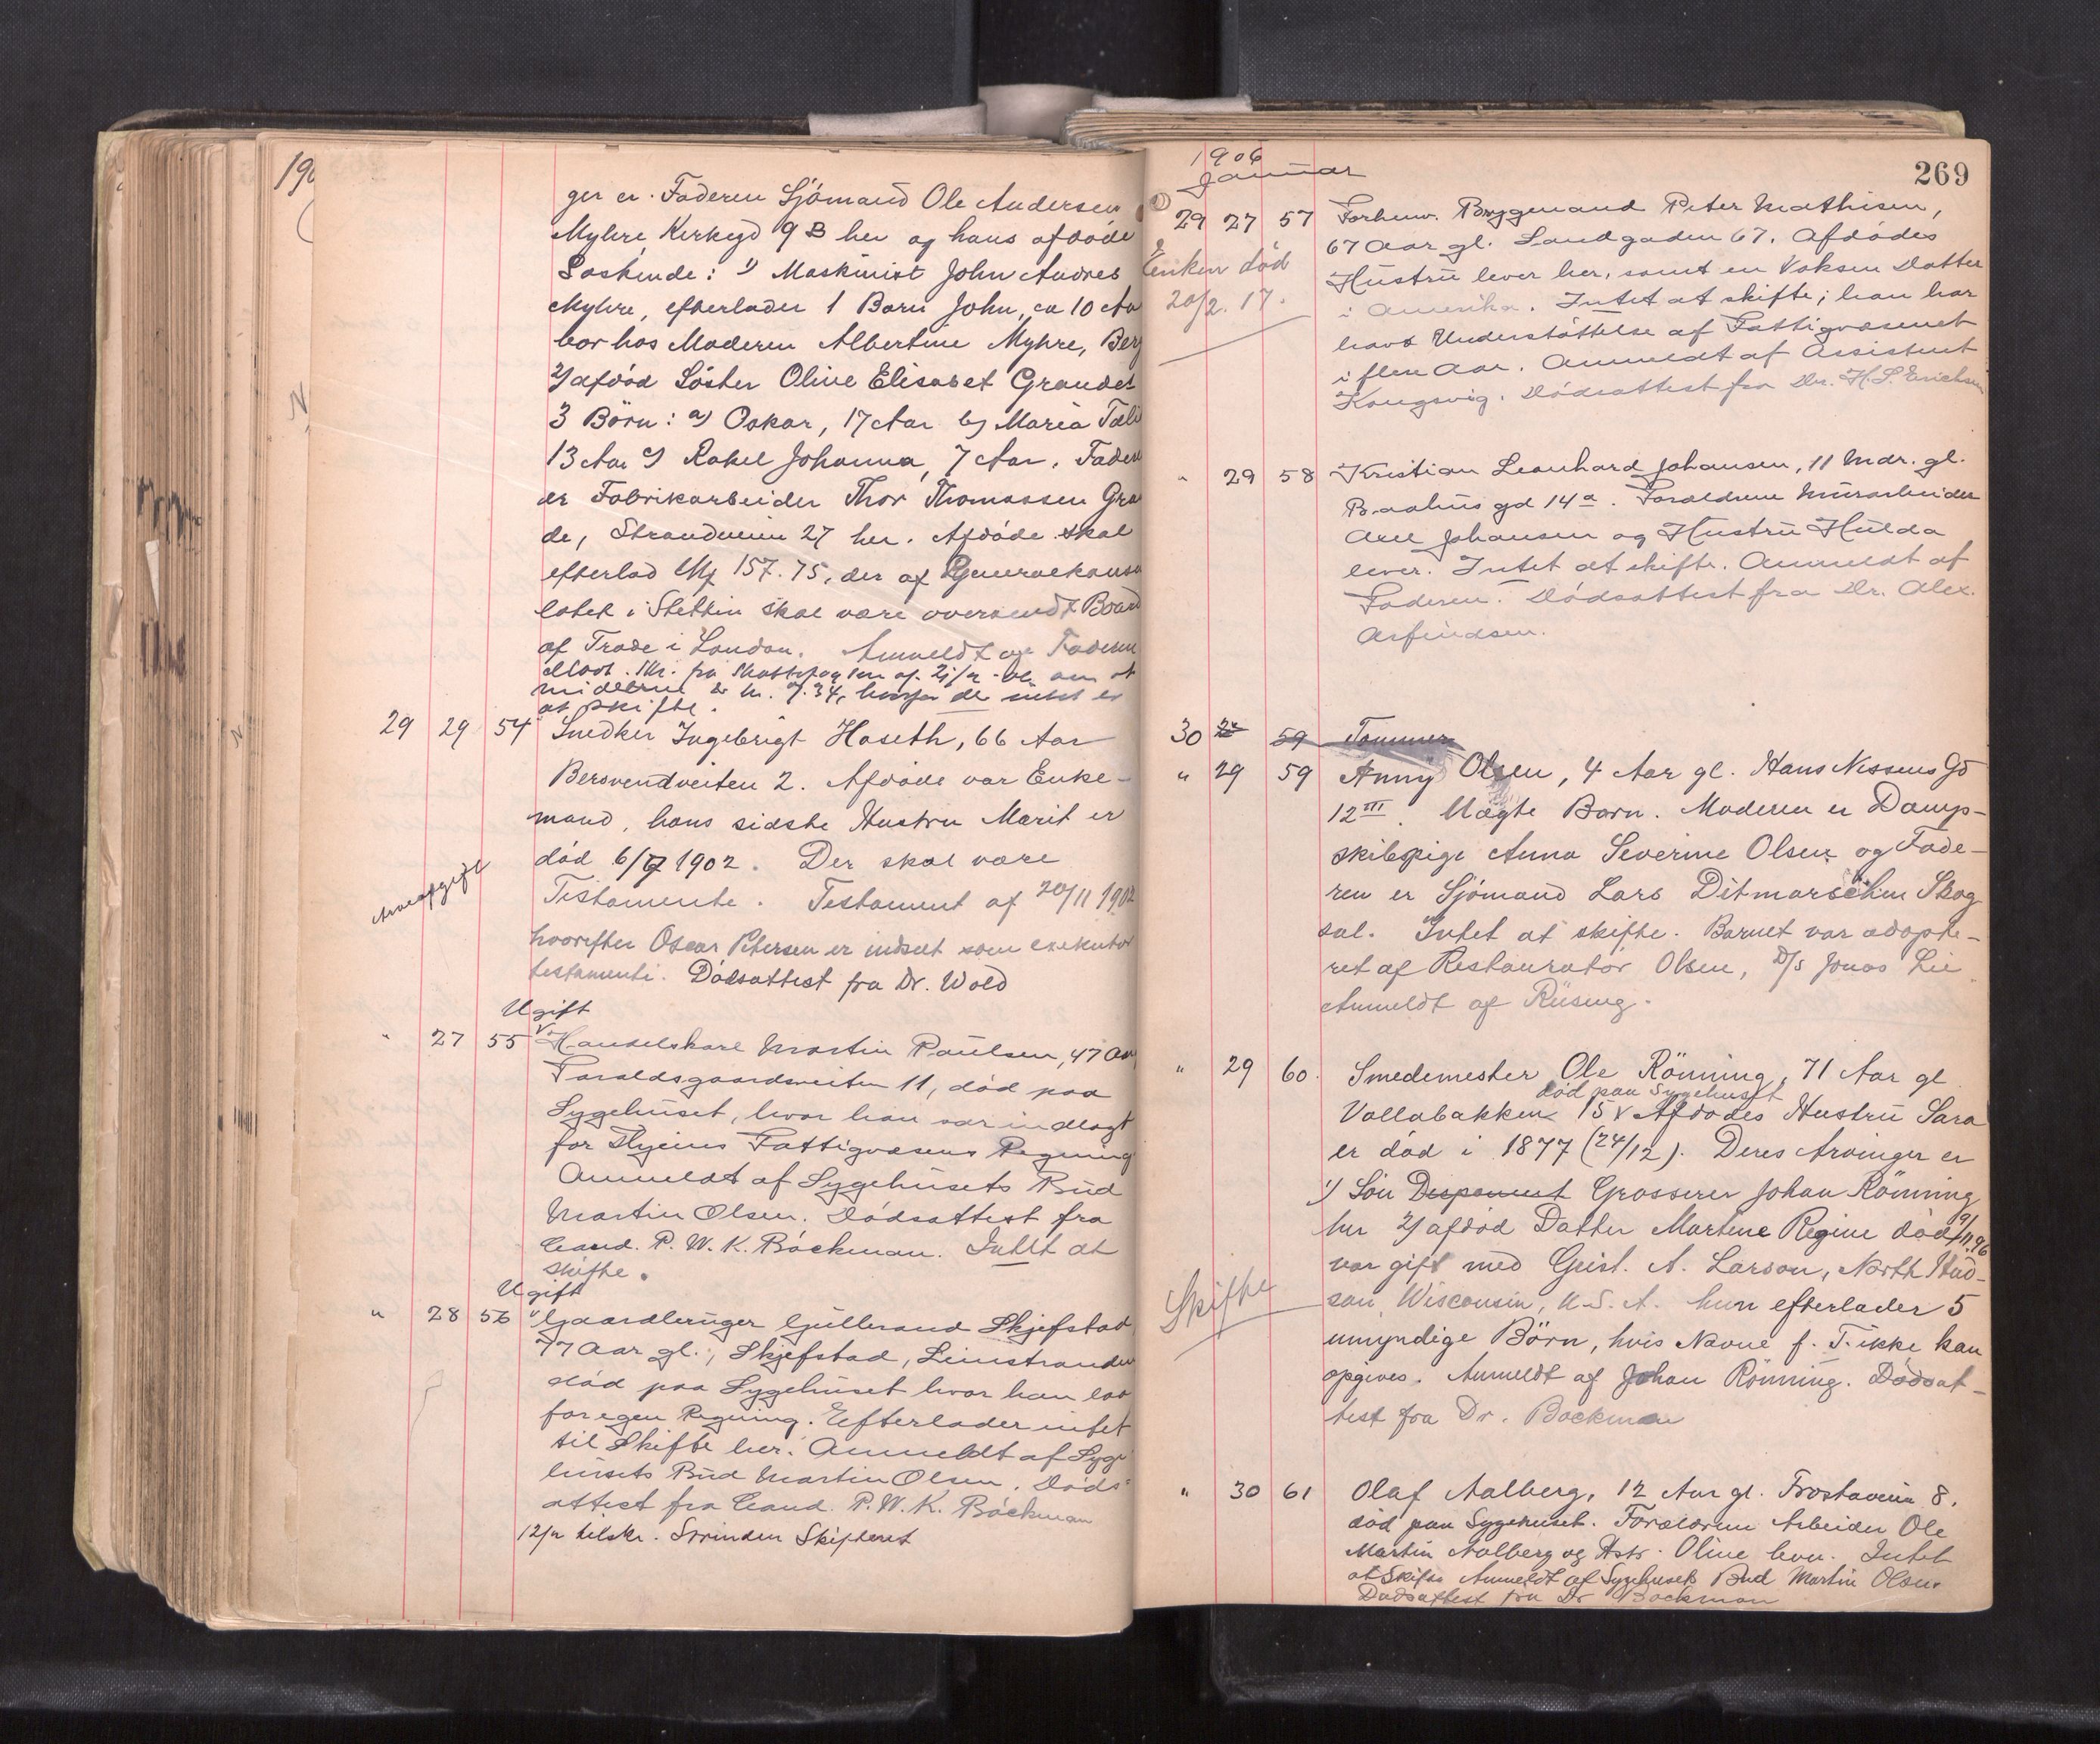 190
ger er. Faderen Sjömand Ole Andersen
Myhre, Kirkegd 9 B her og hans afdöde
Söskende: 1) Maskinist John Andres
Myhre, efterlader 1 Barn John, ca 10 Aar
bor hos Moderen Albertine Myhre, Berg
2) afdöd Söster Olive Elisabet Grande
3 Börn: a) Oskar, 17 Aar b) Maria
13 Aar c) Rakel Johanna, 7 Aar. Fader
er Fabrikarbeider Thor Thomassen Gran
de, Strandveien 27 her. Afdöde skal
efterlad Mk 157.75, der af Generalkonsu
latet i Stettin skal være oversendt Board
af Trade i London. Anmeldt af Faderen
at
midlerne er kr. 7.34, hvorfor der intet er
at skifte.
29 29 54 Snedker Ingebrigt Haseth, 66 Aar
Bersvendveiten 2. Afdöde var Enke-
mand, hans sidste Hustru Marit er
död 6/7 1902. Der skal være
Arveafgift
Testamente. Testament af 20/11 1902
hvorefter Oscar Petersen er indsat som exekutor
testamenti. Dödsattest fra Dr. Wold
Ugift
" 27 55 Handelskarl Martin Paulsen, 47 Aar
Taraldsgaardsveiten 11, död paa
Sygehuset, hvor han var indlagt
for Byens Fattigvæsens Regning
Anmeldt af Sygehusets Bud
Martin Olsen. Dödsattest fra
Cand. P. W. K. Böckman. Intet at
skifte.
Ugift
" 28 56 Gaardbruger Gullerand Skjefstad,
77 Aar gl., Skjefstad, Leinstranden
död paa Sygehuset hvor han laa
for egen Regning. Efterlader intet
til Skifte her. Anmeldt af Syge
husets Bud Martin Olsen. Döds-
attest fra Cand. P. W. K. Böckman
12/2 tilskr. Strinden Skifteret
1906
Januar
269
29 27 57 Forhenv. Bryggemand Peter Mathisen,
67 Aar gl. Sandgaden 67. Afdödes
Enken död
Hustru lever her, samt en Voksen Datter
20/2.17.
i Amerika. Intet at skifte; han har
havt Understöttelse af Fattigvæsenet
i flere Aar. Anmeldt af Assistent
Kongsvig. Dödsattest fra Dr. H. S. Erichsen
" 29 58 Kristian Leonhard Johansen, 11 Mdr. gl.
Baahus gd 14a. Forældrene Murarbeider
Axel Johansen og Hustru Hulda
lever. Intet at skifte. Anmeldt af
Faderen. Dödsattest fra Dr. Alex.
Arfindsen.
30 59 Tømmer
" 29 59 Anny Olsen, 4 Aar gl. Hans Nissens Gd
12 III. Uægte Barn. Moderen er Damp-
skibspige Anna Severine Olsen og Fade-
ren er Sjömand Lars Ditmarschen Skog
sal. Intet at skifte. Barnet var adopte-
ret af Restauratör Olsen, D/s Jonas Lie
Anmeldt af Riising.
" 29 60. Smedemester Ole Rönning, 71 Aar gl
död paa Sygehuset
Vollabakken 15 v Afdödes Hustru Sara
er död i 1877 (24/12). Deres Arvinger er
1) Sön Disponent Grosserer Johan Rönning
her 2) afdöd Datter Martine Regine död 9/11 96
var gift med Geist. A. Larson, North Hud-
Skifte
son, Wisconsin, U.S.A. hun efterlader 5
umyndige Börn, hvis Navne f. T. ikke kan
opgives. Anmeldt af Johan Rönning. Dödsat-
test fra Dr. Bockman
" 30 61 Olaf Aalberg, 12 Aar gl. Frostaveien 8.
död paa Sygehuset. Forældrene Arbeider Ole
Martin Aalberg og Hstr. Oline lever. Intet
at skifte Anmeldt af Sygehusets Bud Martin Olsen.
Dödsattest fra Dr Bockman